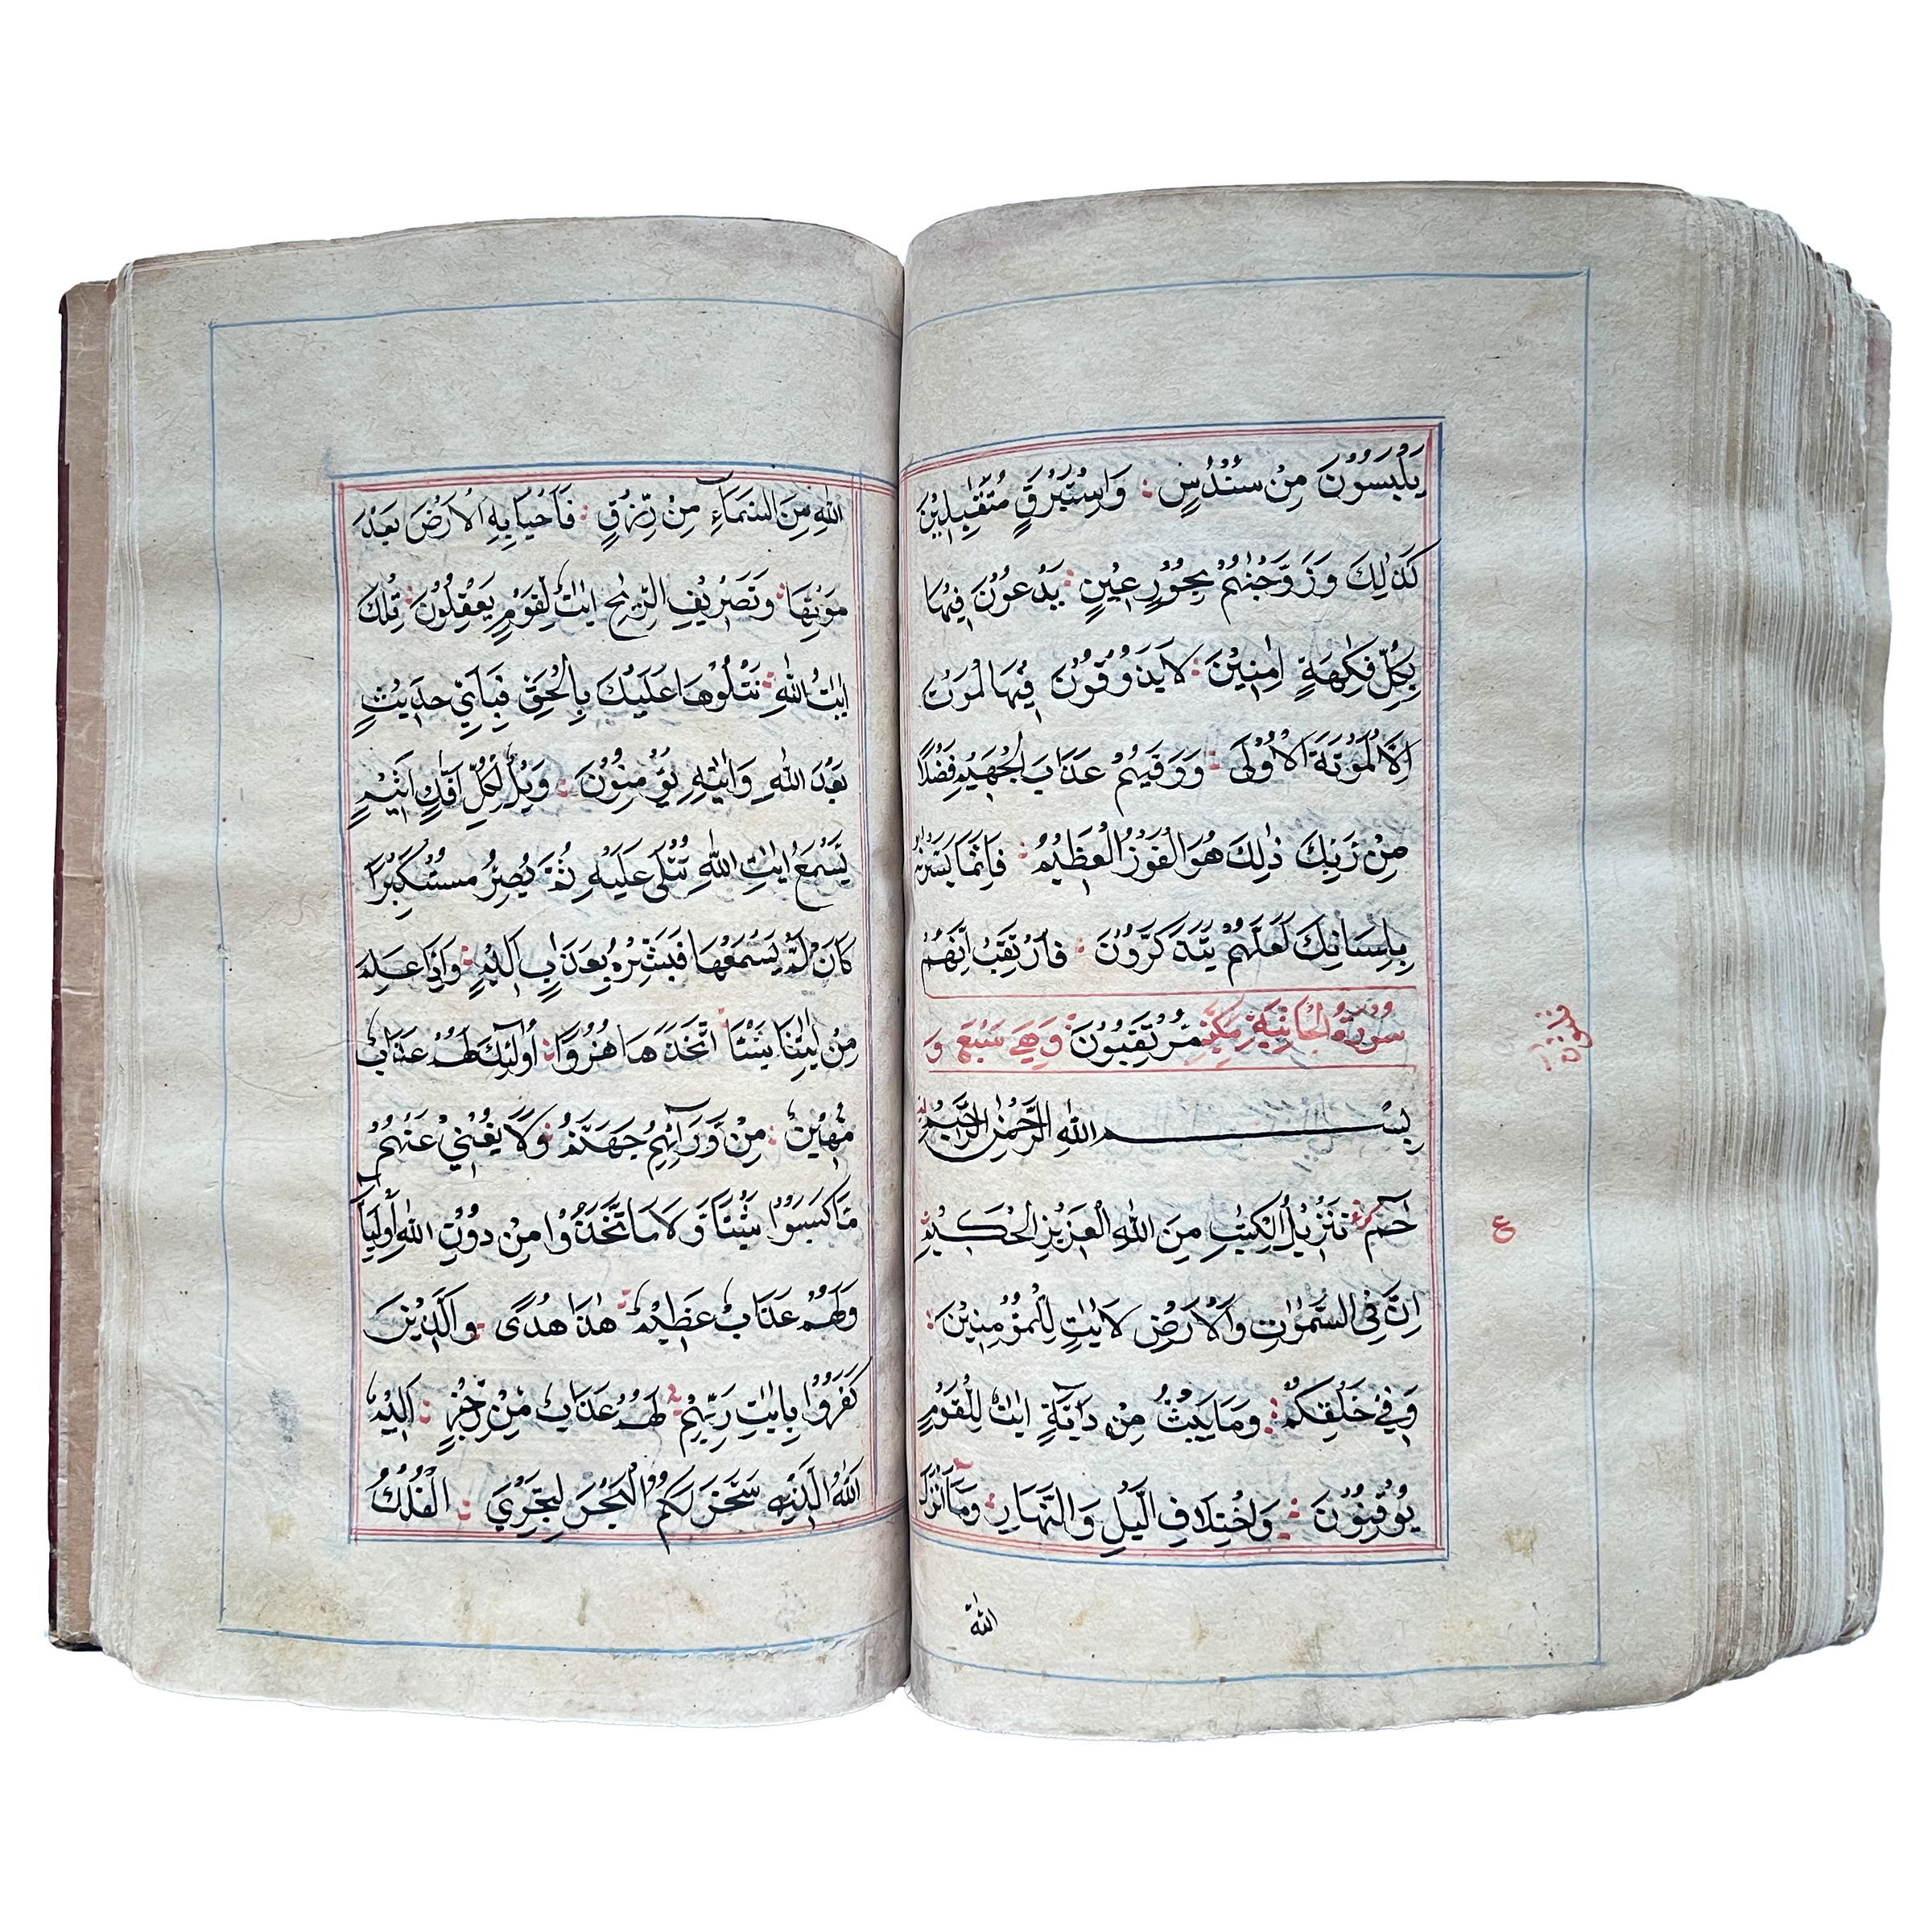 يَلْبَسُوْنَ مِنْ سُنْدُسٍ وَاِسْتَبْرَقٍ مُتَقٰبِلِيْنَ
كَذٰلِكَ وَزَوَّجْنٰهُمْ بِحُوْرٍ عِيْنٍ يَدْعُوْنَ فِيْهَا
بِكُلِّ فَكِهَةٍ اٰمِنِيْنَ لَا يَذُوْقُوْنَ فِيْهَا الْمَوْتَ
اِلَّا الْمَوْتَةَ الْاُوْلٰى وَوَقٰيهُمْ عَذَابَ الْجَحِيْمِ فَضْلًا
مِنْ رَبِّكَ ذٰلِكَ هُوَ الْفَوْزُ الْعَظِيْمُ فَاِنَّمَا يَسَّرْنٰهُ
بِلِسَانِكَ لَعَلَّهُمْ يَتَذَكَّرُوْنَ فَارْتَقِبْ اِنَّهُمْ
سُوْرَةُ الْجَاثِيَةِ مَكِيَّة مُرْتَقِبُوْنَ وَهِيَ سَبْعٌ وَ
بِسْمِ اللهِ الرَّحْمٰنِ الرَّحِيْمِ
حٰمٓ تَنْزِيْلُ الْكِتٰبِ مِنَ اللهِ الْعَزِيْزِ الْحَكِيْمِ
ع
اِنَّ فِى السَّمٰوٰتِ وَالْاَرْضِ لَاٰيٰتٍ لِلْمُؤْمِنِيْنَ
وَفِيْ خَلْقِكُمْ وَمَا يَبُثُّ مِنْ دَآبَّةٍ اٰيٰتٌ لِلْقَوْمٍ
يُوْقِنُوْنَ وَاخْتِلَافِ الَّيْلِ وَالنَّهَارِ وَمَآ اَنْزَلَ
اللهُ
اللهُ مِنَ السَّمَآءِ مِنْ رِّزْقٍ فَاَحْيَا بِهِ الْاَرْضَ بَعْدَ
مَوْتِهَا وَتَصْرِيْفِ الرِّيٰحِ اٰيٰتٌ لِقَوْمٍ يَعْقِلُوْنَ تِلْكَ
اٰيٰتُ اللهِ نَتْلُوْهَا عَلَيْكَ بِالْحَقِّ فَبِاَيِّ حَدِيْثٍ
بَعْدَ اللهِ وَاٰيٰتِهِ يُؤْمِنُوْنَ وَيْلٌ لِكُلِّ اَفَّاكٍ اَثِيْمٍ
يَسْمَعُ اٰيٰتِ اللهِ تُتْلٰى عَلَيْهِ ثُمَّ يُصِرُّ مُسْتَكْبِرًا
كَاَنْ لَّمْ يَسْمَعْهَا فَبَشِّرْهُ بِعَذَابٍ اَلِيْمٍ وَاِذَا عَلِمَ
مِنْ اٰيٰتِنَا شَيْئًا اتَّخَذَهَا هُزُوًا اُولٰٓئِكَ لَهُمْ عَذَابٌ
مُّهِيْنٌ مِنْ وَّرَآئِهِمْ جَهَنَّمُ وَلَا يُغْنِيْ عَنْهُمْ
مَا كَسَبُوْا شَيْئًا وَّلَا مَا تَّخَذُوْا مِنْ دُوْنِ اللهِ اَوْلِيَآءَ
وَلَهُمْ عَذَابٌ عَظِيْمٌ هٰذَا هُدًى وَالَّذِيْنَ
كَفَرُوْا بِاٰيٰتِ رَبِّهِمْ لَهُمْ عَذَابٌ مِّنْ رِّجْزٍ اَلِيْمٌ
اَللهُ الَّذِيْ سَخَّرَ لَكُمُ الْبَحْرَ لِتَجْرِيَ الْفُلْكُ